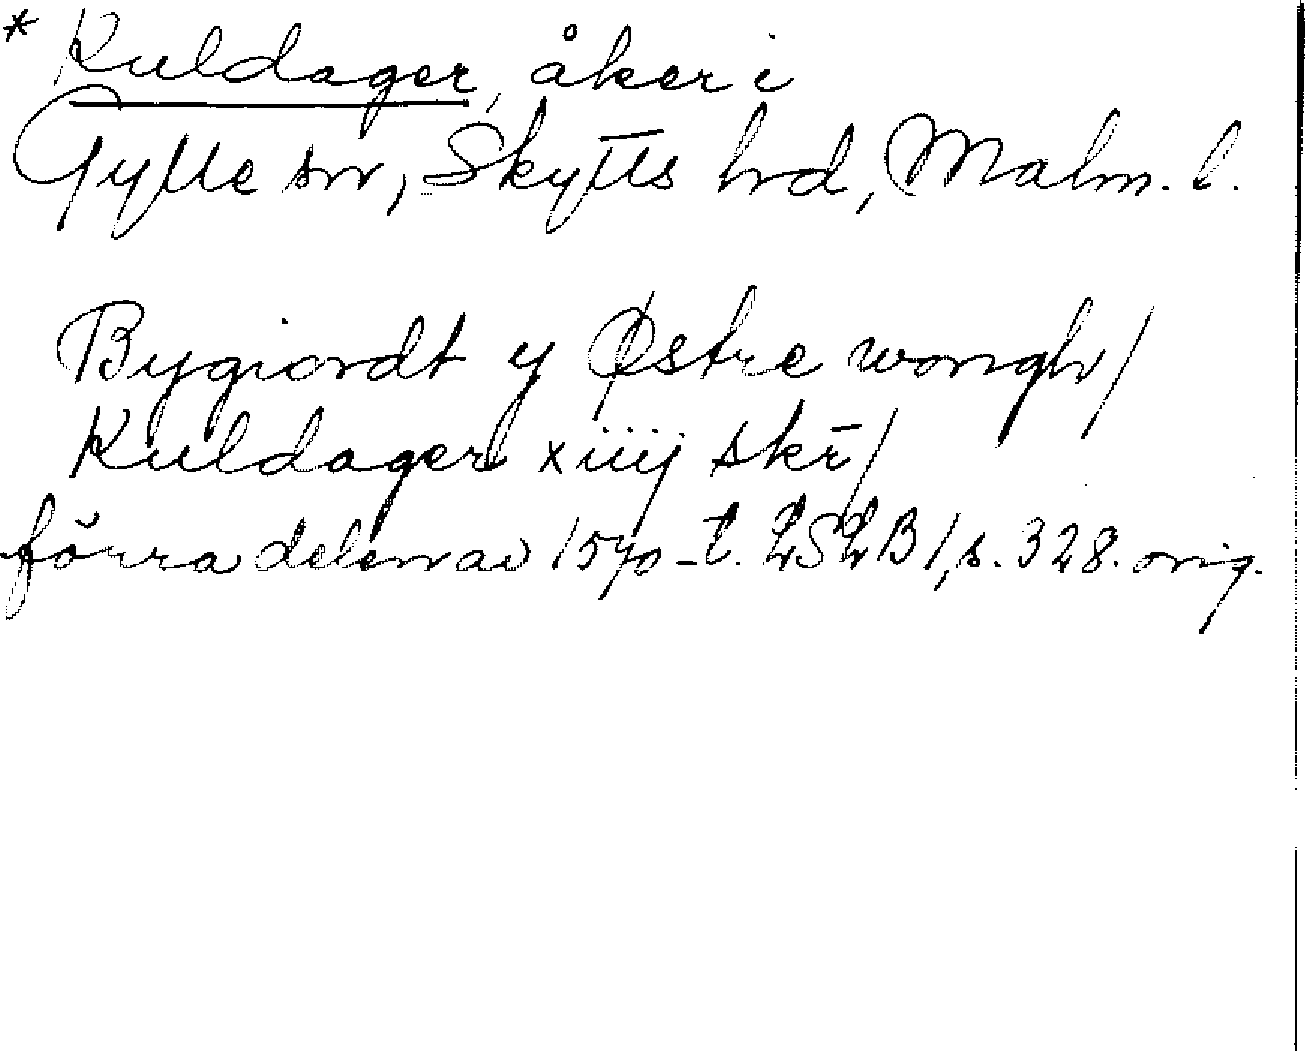 * Kuldager, åker i
Gylle sn, Skytts hd, Malm. l.
Bygiordt y Østre wongh/
Kuldager xiiij skr̄/
förra delen av 1570-t. LSLB1, s. 328. orig.